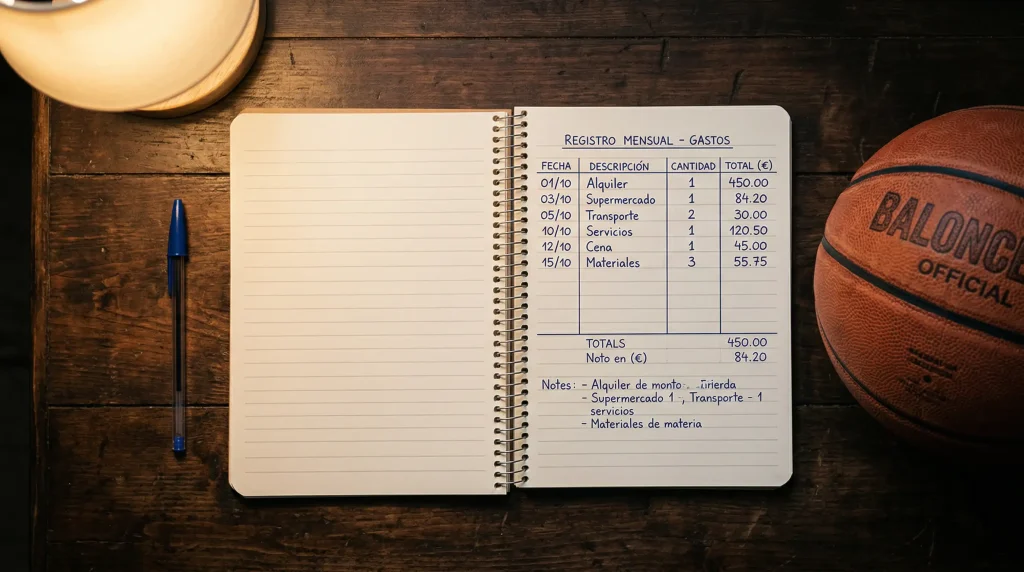 REGISTRO MENSUAL - GASTOS
FECHA DESCRIPCIÓN CANTIDAD TOTAL (€)
01/10 Alquiler 1 450.00
03/10 Supermercado 1 84.20
05/10 Transporte 2 30.00
10/10 Servicios 1 120.50
12/10 Cena 1 45.00
15/10 Materiales 3 55.75
TOTALS 450.00
Noto en (€) 84.20
Notes: - Alquiler de monto
- Supermercado 1 -, Transporte - 1
servicios
- Materiales de materia
BALONCE
OFFICIAL